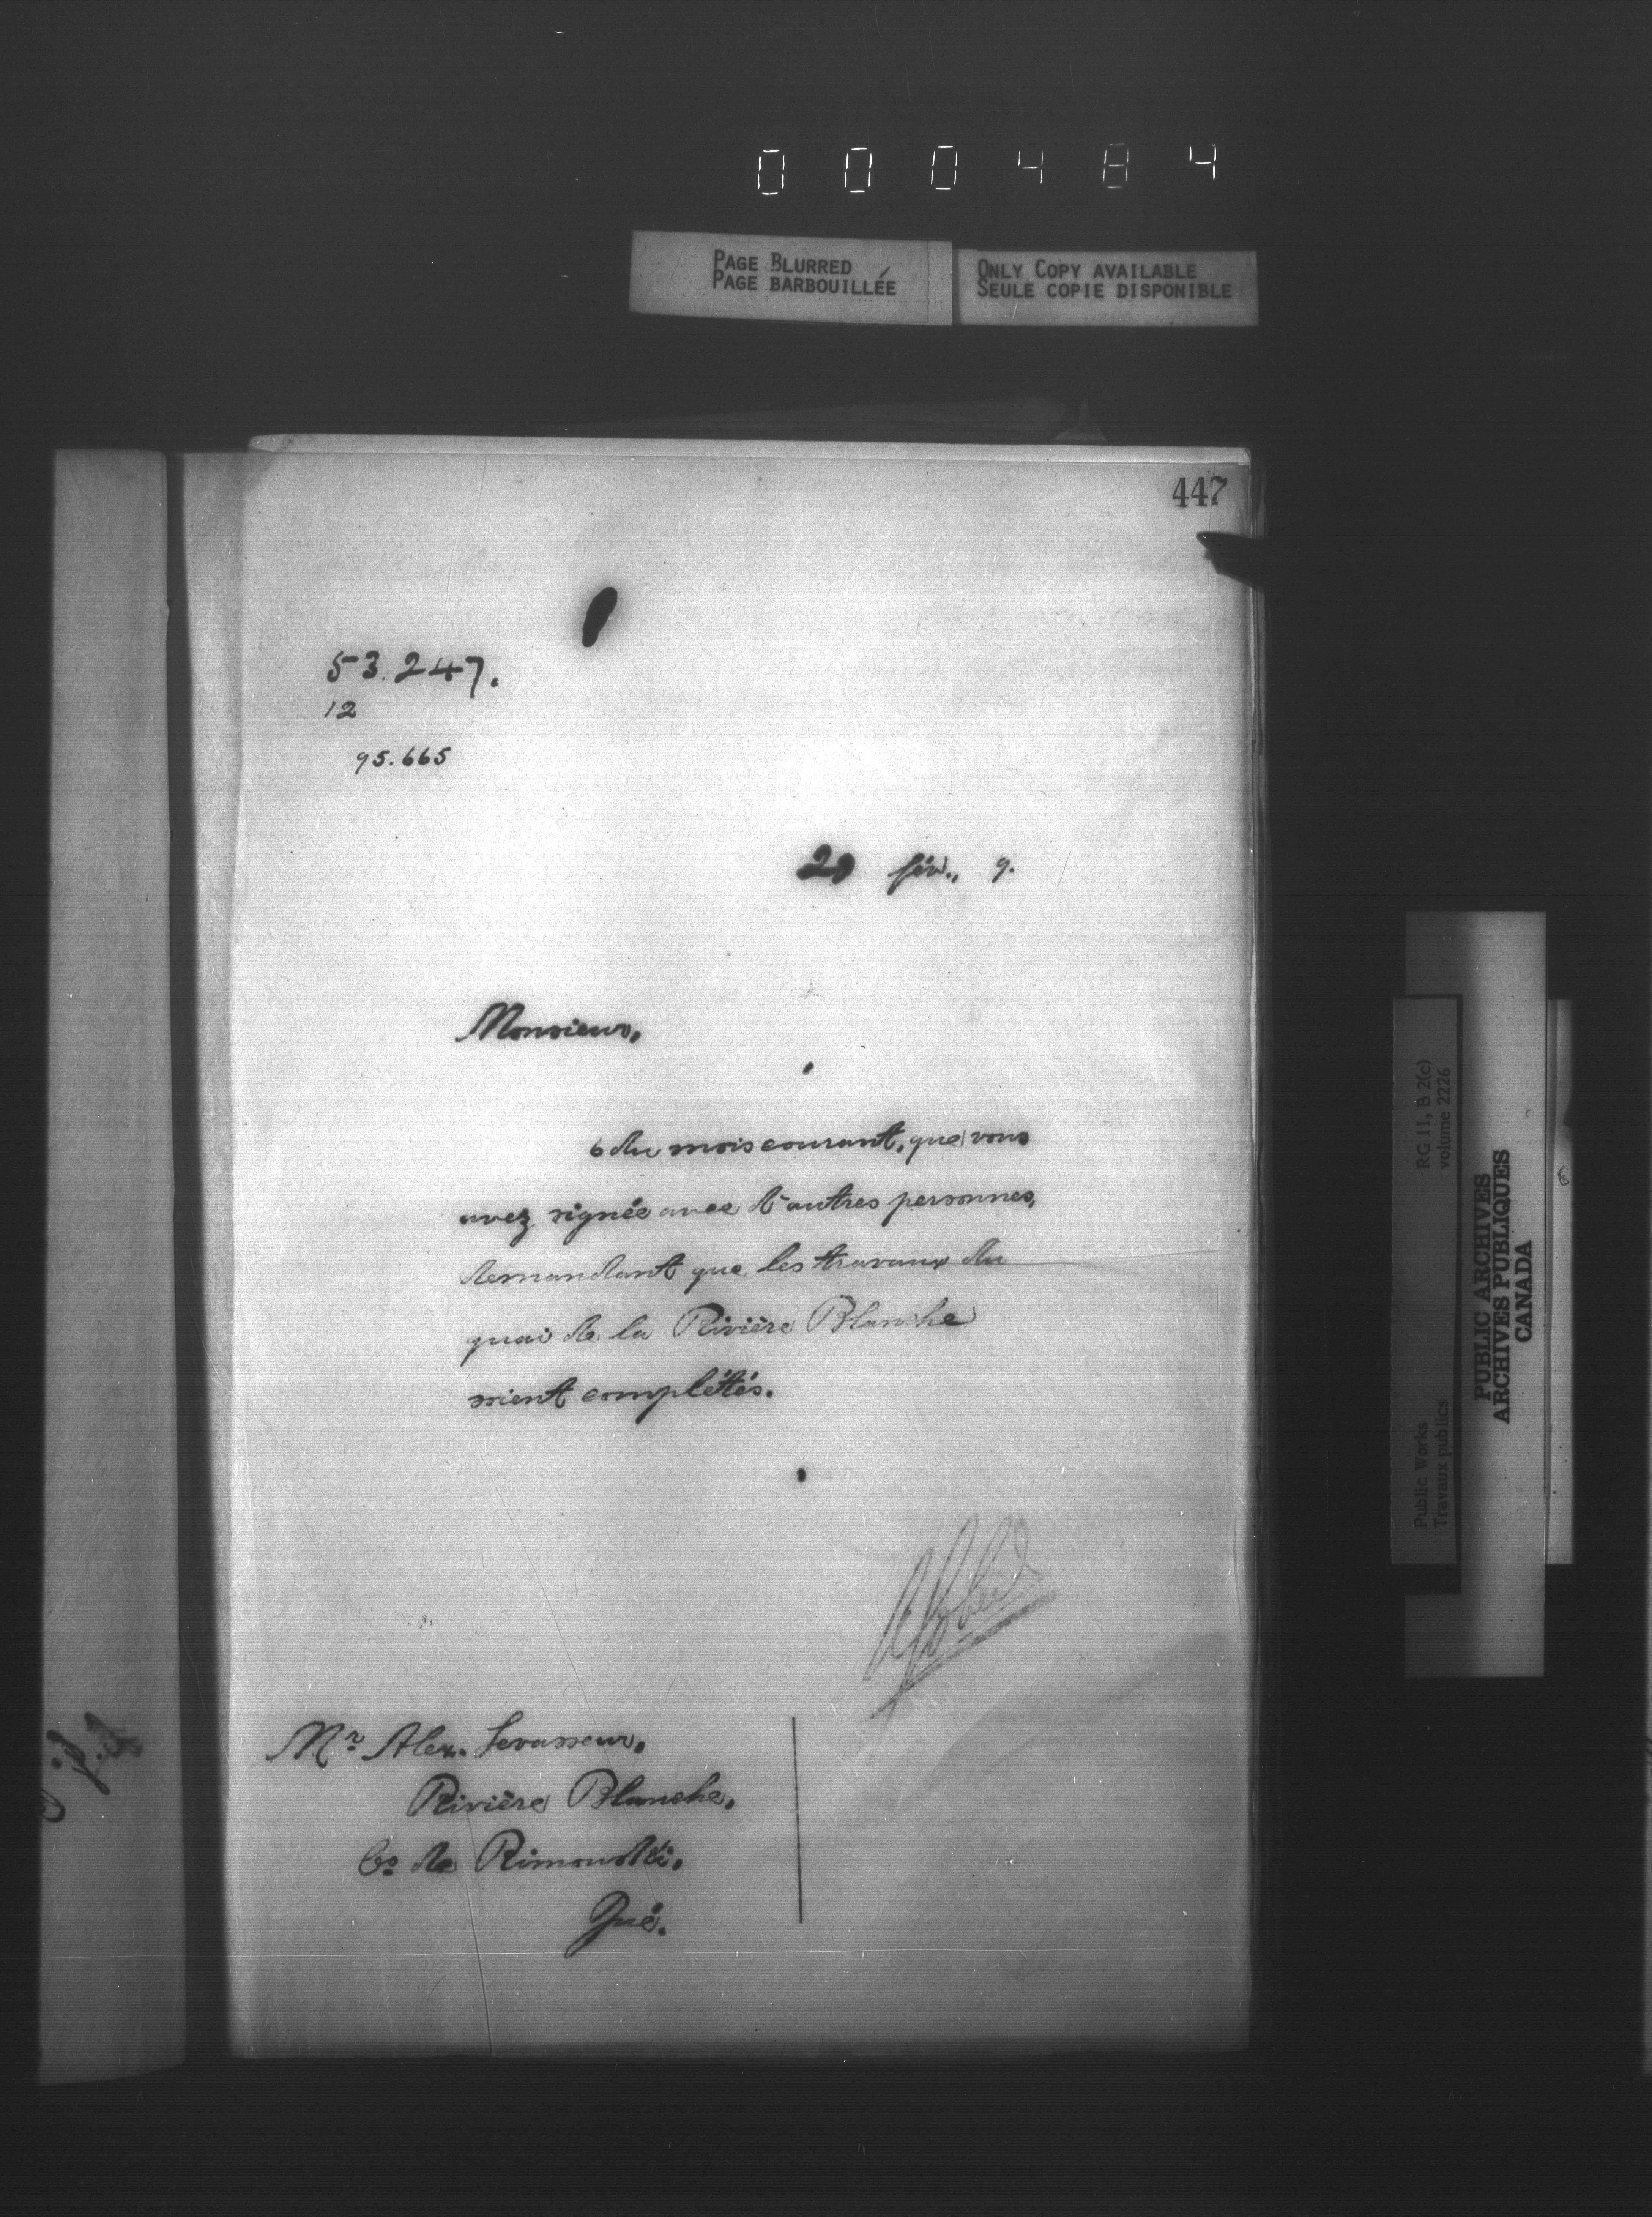 000484
PAGE BLURRED
PAGE BARBOUILLÉE
ONLY COPY AVAILABLE
SEULE COPIE DISPONIBLE
447
53.247.
12
95.665
fév., 9.
Monsieur,
6 du mois courant, que vous
avez signée avec d'autres personnes,
demandant que les travaux du
quai de la Rivière Blanche
soient complétés.
Mr Alex. Levasseur,
Rivière Blanche,
Co de Rimouski,
Qué.
Public Works
Travaux publics
RG 11, B 2(c)
volume 2226
PUBLIC ARCHIVES
ARCHIVES PUBLIQUES
CANADA